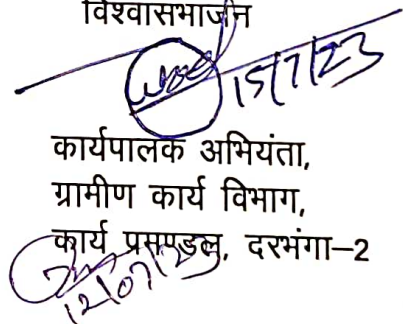 विश्वासभाजन
15/7/23
कार्यपालक अभियंता,
ग्रामीण कार्य विभाग,
कार्य प्रमण्डल, दरभंगा–2
12/07/23